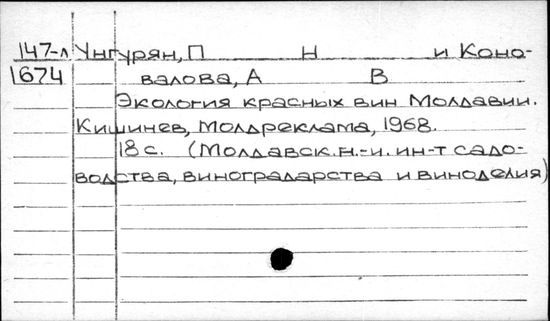 147-л Унгурян, П Н и Коно-
1674 валова, А В
Экология красных вин Молдавии.
Кишинев, Молдреклама, 1968.
18 с. (Молдавск.н.-и. ин-т садо-
водства, виноградарства и виноделия)